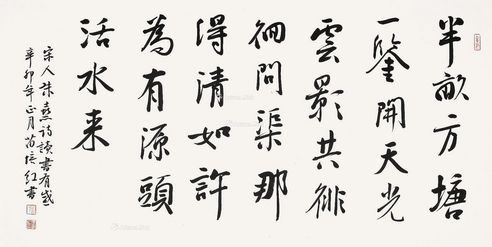 半畝方塘
一鑒開天光
雲影共徘
徊問渠那
得清如許
為有源頭
活水来
宋人朱熹詩讀書有感
辛卯年正月苗培红書